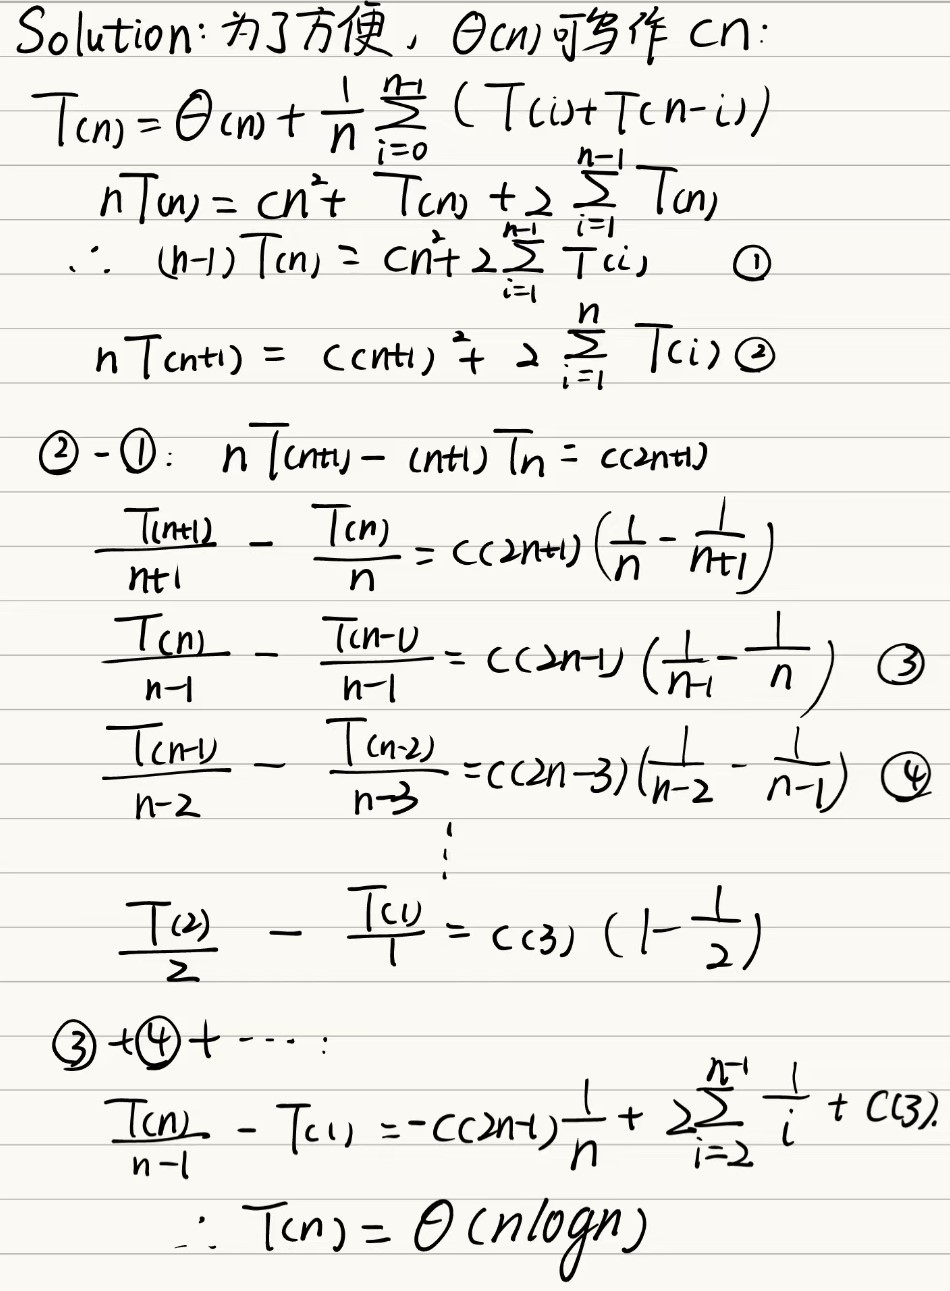 Solution: 为了方便, Θ(n)可写作 cn:
T(n) = Θ(n) + \frac{1}{n} \sum_{i=0}^{n-1} (T(i)+T(n-i))
nT(n) = cn²+ T(n) + 2 \sum_{i=1}^{n-1} T(n)
∴ (n-1)T(n) = cn²+ 2\sum_{i=1}^{n-1} T(i) ①
nT(n+1) = c(n+1)² + 2 \sum_{i=1}^{n} T(i) ②
②-①: nT(n+1) - (n+1)Tn = c(2n+1)
\frac{T(n+1)}{n+1} - \frac{T(n)}{n} = c(2n+1) (\frac{1}{n} - \frac{1}{n+1})
\frac{T(n)}{n-1} - \frac{T(n-1)}{n-1} = c(2n-1) (\frac{1}{n-1} - \frac{1}{n}) ③
\frac{T(n-1)}{n-2} - \frac{T(n-2)}{n-3} = c(2n-3) (\frac{1}{n-2} - \frac{1}{n-1}) ④
⋮
\frac{T(2)}{2} - \frac{T(1)}{1} = c(3) (1-\frac{1}{2})
③+④+ ····:
\frac{T(n)}{n-1} - T(1) = -c(2n-1)\frac{1}{n} + 2\sum_{i=2}^{n-1} \frac{1}{i} + c(3).
∴ T(n) = Θ(nlogn)